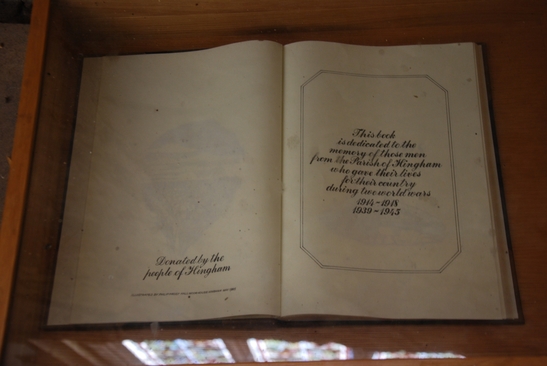 Donated by the
people of Hingham
This book
is dedicated to the
memory of those men
from The Parish of Hingham
who gave their lives
for their country
during two world wars
1914-1918
1939-1945